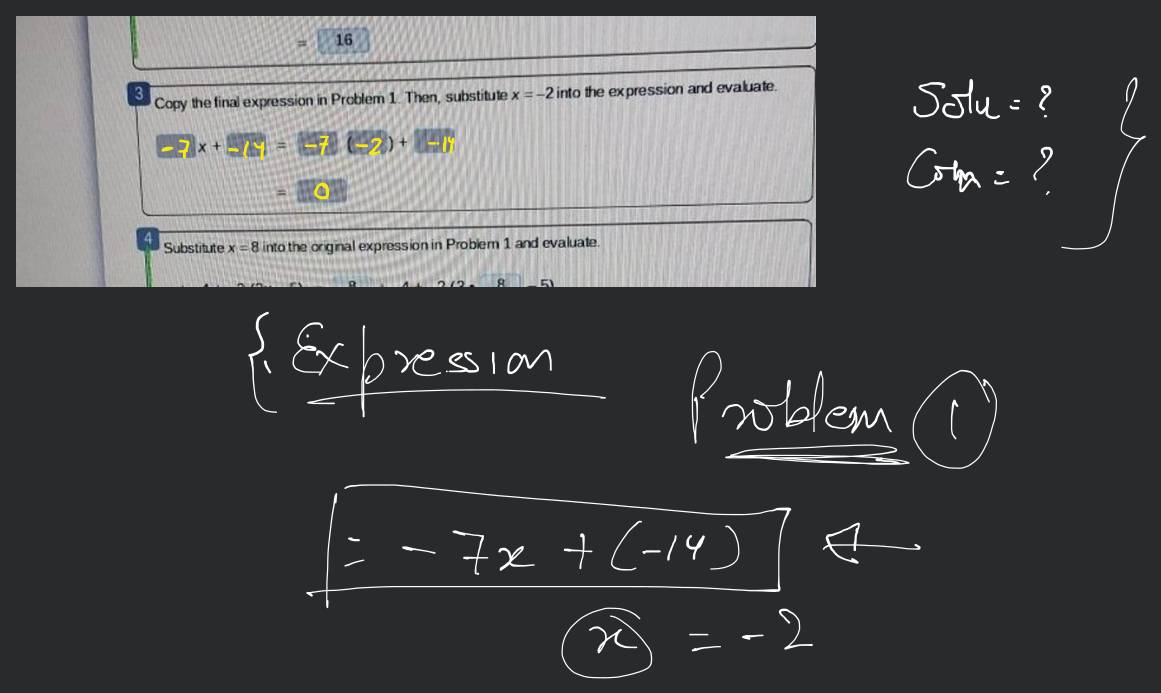 = 16
3 Copy the final expression in Problem 1. Then, substitute x = -2 into the expression and evaluate.
-7 x + -14 = -7 (-2) + -14
= 0
4 Substitute x = 8 into the original expression in Problem 1 and evaluate.
8 8 - 5)
Solu = ?
= ?
{ Expression
Problem 1
= - 7x + (-14)
x = - 2